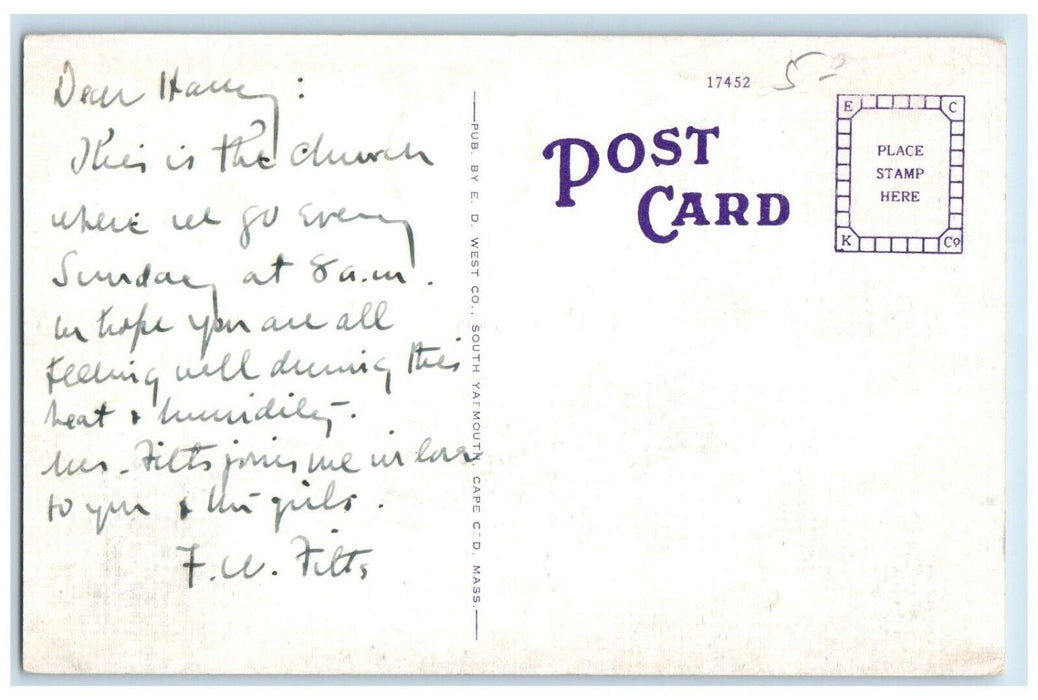 Dear Harry:
This is the church
where we go every
Sunday at 8 a.m.
We hope you are all
feeling well during this
heat & humidity.
Mrs. Filts joins me in love
to you & the girls.
F.W. Filts
PUB. BY E. D. WEST CO., SOUTH YARMOUTH, CAPE COD, MASS.
17452
5-
POST
CARD
E C
PLACE
STAMP
HERE
K Co